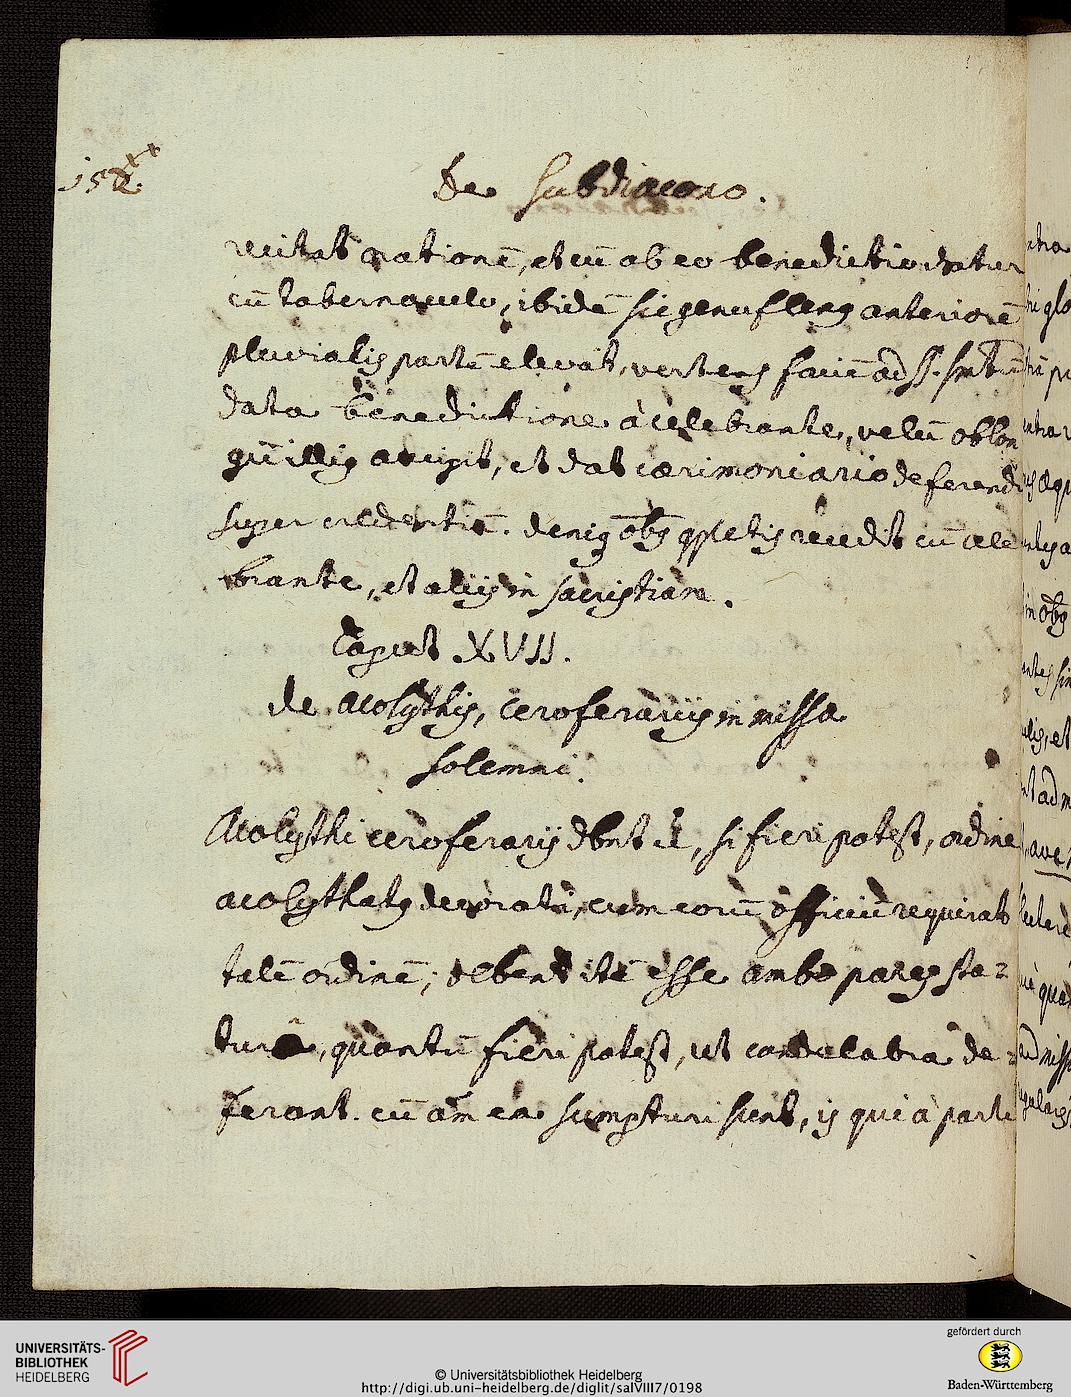 152.
De Subdiacono.
recitat orationē, et cū ab eo benedictio datur
cū tabernaculo, ibidē sic genuflexus anteriorē
pluvialis partē elevat, vertens faciē ad SS. Sm̄tū
data benedictione à celebrante, velū oblon
gū illis accipit, et dat cærimoniario deferendū
super credentiā. deniq oībg 9pletis recedit cū cele
brante, et aliis in sacristiam.
Caput XVII.
de acolythis, ceroferariis in missa
solemni.
Acolythi ceroferarij dbnt ēē, si fieri potest, ordine
acolythatg decorati, cum eorū officiū requirat
talē ordinē; debent itē esse ambo pares sta=
turâ, quantū fieri potest, ut candelabra de=
ferant. cū aūm ea sumpturi sunt, is qui à parte
UNIVERSITÄTS-
BIBLIOTHEK
HEIDELBERG
© Universitätsbibliothek Heidelberg
http://digi.ub.uni-heidelberg.de/diglit/salVIII7/0198
gefördert durch
Baden-Württemberg